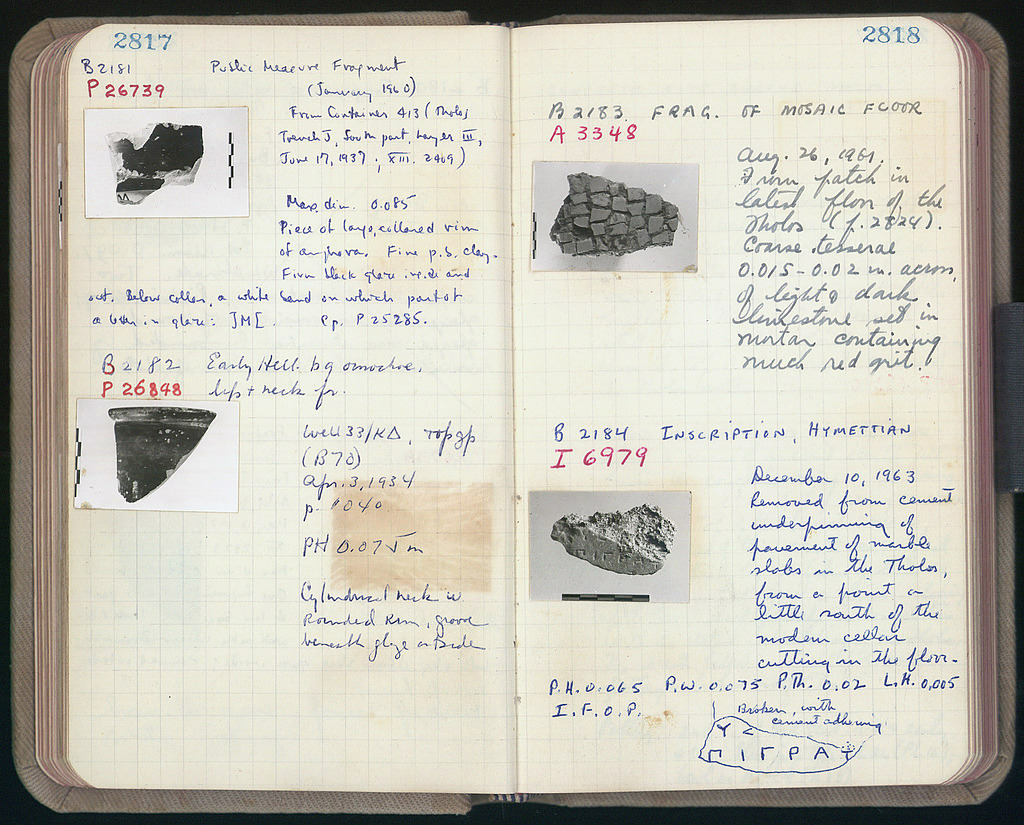 2817
B 2181 Public Measure Fragment
P 26739
(January 1960)
From Container 413 (Tholos
Trench J, South part, Layer III,
June 17, 1937; XIII. 2409)
Max. dim. 0.085
Piece of large, collared rim
of amphora. Fine p.b. clay.
Firm black glaze inside and
out. Below collar, a white band on which part of
a letter in glaze: ]M[. Pp. P 25285.
B 2182 Early Hell. bg oinochoe,
P 26848 lip + neck fr.
Well 33/ΚΔ, top gp
(B70)
Apr. 3, 1934
p. 1040
PH 0.075 m
Cylindrical neck w.
rounded rim, groove
beneath glaze outside
2818
B 2183. FRAG. OF MOSAIC FLOOR
A 3348
Aug. 26, 1961.
From patch in
latest floor of the
Tholos (p. 2824).
Coarse tesserae
0.015-0.02 m. across,
of light & dark
limestone set in
mortar containing
much red grit.
B 2184 INSCRIPTION, HYMETTIAN
I 6979
December 10, 1963
Removed from cement
underpinning of
pavement of marble
slabs in the Tholos,
from a point a
little south of the
modern cellar
cutting in the floor.
P.H. 0.065 P.W. 0.075 P.Th. 0.02 L.H. 0.005
I.F.O.P.
Broken, with
cement adhering
Υ <
Π Ι Γ Ρ Α